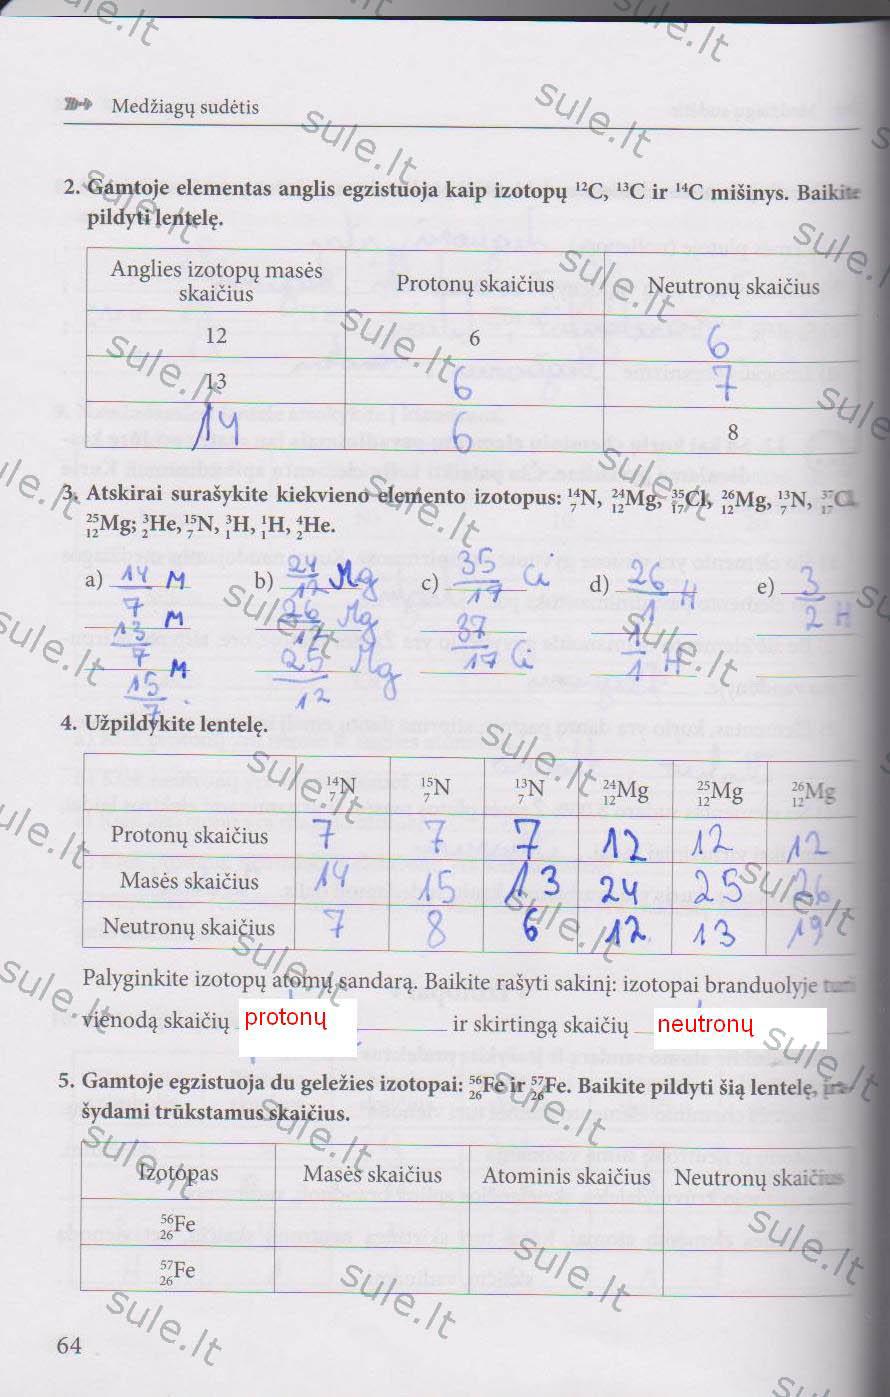 Medžiagų sudėtis
2. Gamtoje elementas anglis egzistuoja kaip izotopų ¹²C, ¹³C ir ¹⁴C mišinys. Baikite
pildyti lentelę.
Anglies izotopų masės skaičius Protonų skaičius Neutronų skaičius
12 6 6
13 6 7
14 6 8
3. Atskirai surašykite kiekvieno elemento izotopus: ¹⁴₇N, ²⁴₁₂Mg, ³⁵₁₇Cl, ²⁶₁₂Mg, ¹³₇N, ³⁷₁₇Cl
²⁵₁₂Mg; ³₂He, ¹⁵₇N, ³₁H, ¹₁H, ⁴₂He.
a) 14/7 N b) 24/12 Mg c) 35/17 Ci d) 26/1 H e) 3/2 H
13/7 N 26/12 Mg 37/17 Ci 1/1 H
15/7 N 25/12 Mg
4. Užpildykite lentelę.
¹⁴₇N ¹⁵₇N ¹³₇N ²⁴₁₂Mg ²⁵₁₂Mg ²⁶₁₂Mg
Protonų skaičius 7 7 7 12 12 12
Masės skaičius 14 15 13 24 25 26
Neutronų skaičius 7 8 6 12 13 19
Palyginkite izotopų atomų sandarą. Baikite rašyti sakinį: izotopai branduolyje turi
vienodą skaičių protonų ir skirtingą skaičių neutronų
5. Gamtoje egzistuoja du geležies izotopai: ⁵⁶₂₆Fe ir ⁵⁷₂₆Fe. Baikite pildyti šią lentelę, įra-
šydami trūkstamus skaičius.
Izotopas Masės skaičius Atominis skaičius Neutronų skaičius
⁵⁶₂₆Fe
⁵⁷₂₆Fe
64
sule.lt